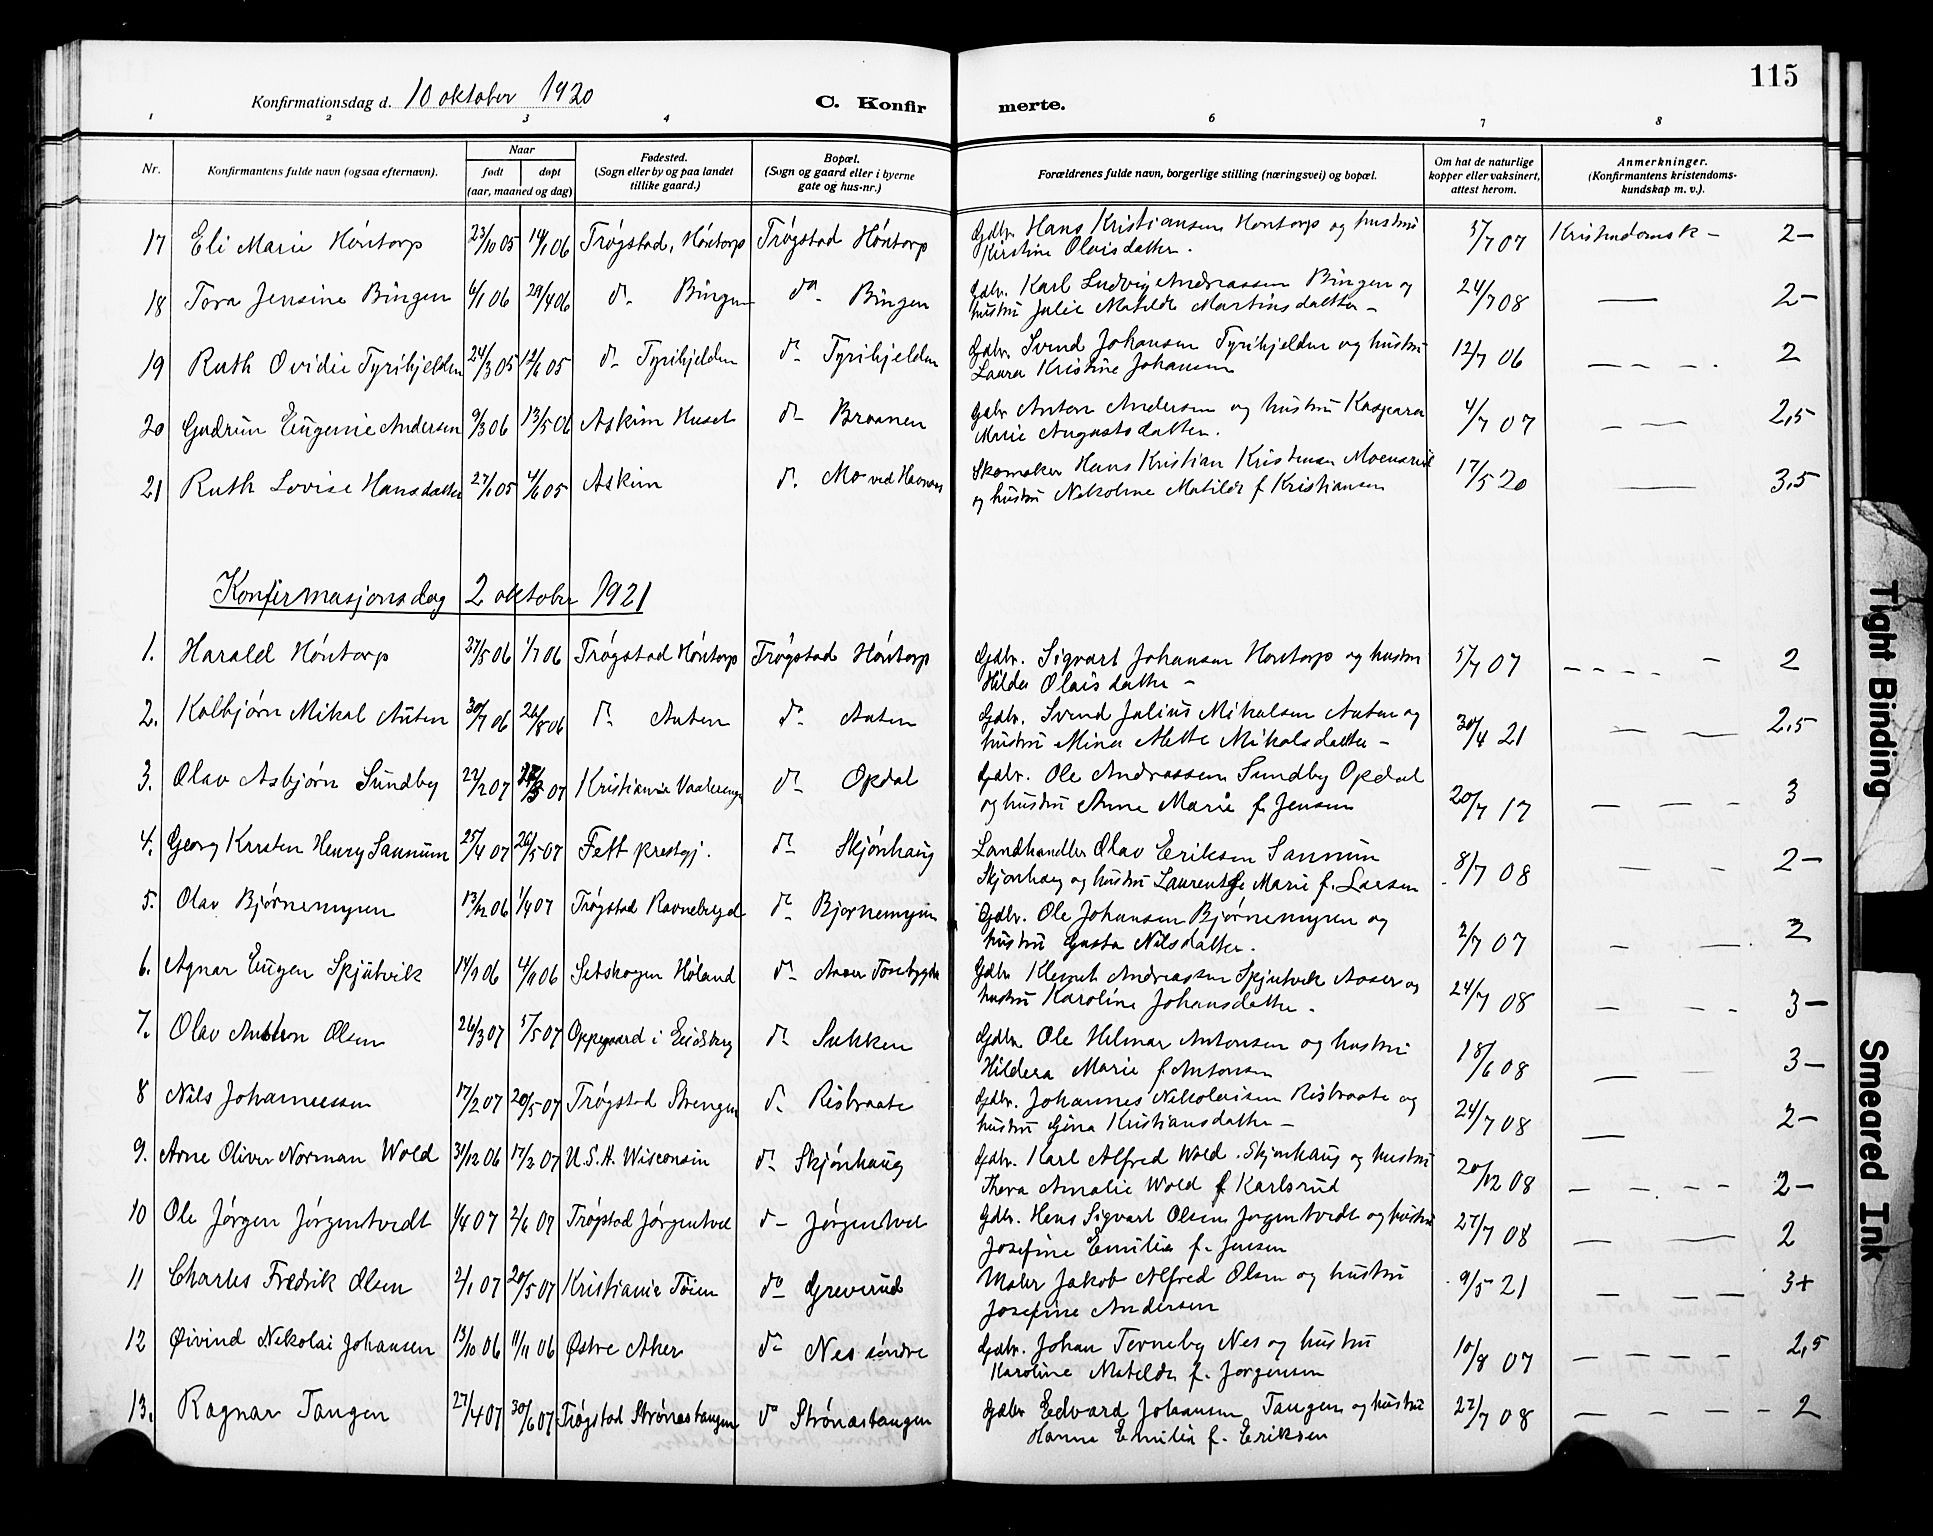 115
Konfirmationsdag d. 10 oktober 1920
C. Konfirmerte.
1 2 3 4 6 7 8
Nr.
Konfirmantens fulde navn (ogsaa efternavn).
Naar
født døpt
(aar, maaned og dag)
Fødested.
(Sogn eller by og paa landet
tillike gaard.)
Bopæl.
(Sogn og gaard eller i byerne
gate og hus-nr.)
Forældrenes fulde navn, borgerlige stilling (næringsvei) og bopæl.
Om hat de naturlige
kopper eller vaksinert,
attest herom.
Anmerkninger.
(Konfirmantens kristendoms-
kundskap m. v.).
17 Eli Marie Höntorp 23/10 05 14/1 06 Trøgstad, Höntorp Trøgstad Höntorp Gdbr. Hans Kristiansen Höntorp og hustru 5/7 07 Kristendomsk - 2-
Kirstine Olaisdatter.
18 Tora Jensine Bingen 6/1 06 29/4 06 do- Bingen do- Bingen Gdbr. Karl Ludvig Andreassen Bingen og 24/7 08 — 2-
hustru Julie Matilde Martinsdatter -
19 Ruth Ovidie Tyrihjelden 24/3 05 12/6 05 do- Tyrihjelden do- Tyrihjelden Gdbr. Svend Johansen Tyrihjelden og hustru 12/7 06 — 2
Laura Kristine Johansen
20 Gudrun Eugenie Andersen 9/3 06 13/5 06 Askim Huset do- Braanen Gdbr Anton Andersen og hustru Kaspara 4/7 07 — 2,5
Marie Augustsdatter.
21 Ruth Lovise Hansdatter 27/1 05 4/6 05 Askim do. Mo ved Havnaas Skomaker Hans Kristian Kristensen 17/5 20 — 3,5
og hustru Nikoline Matilde f Kristiansen
Konfirmasjonsdag 2 oktober 1921
1. Harald Höntorp 27/5 06 1/7 06 Trøgstad Höntorp Trøgstad Höntorp Gdbr. Sigvart Johansen Höntorp og hustru 5/7 07 — 2
Hilda Olaisdatter -
2. Kolbjørn Mikal Auten 30/7 06 26/8 06 do- Auten do- Auten Gdbr. Svend Julius Mikalsen Auten og 30/4 21 — 2,5
hustru Mina Mette Mikalsdatter -
3. Olav Asbjørn Sundby 22/2 07 Kristiania Vaalerenga do- Opdal Gdbr. Ole Andreassen Sundby Opdal 20/7 17 — 3
og hustru Anne Marie f. Jensen
4. Georg Karsten Henry Sannum 25/4 07 26/5 07 Fett prestgj. do- Skjönhaug Landhandler Olav Eriksen Sannum 8/7 08 — 2-
Skjönhaug og hustru Laurentze Marie f. Larsen
5. Olav Bjørnemyren 13/12 06 1/4 07 Trøgstad do- Bjørnemyren Gdbr. Ole Johansen Bjørnemyren og 2/7 07 — 2
hustru Gusta Nilsdatter.
6. Agnar Eugen Spjutvik 14/9 06 4/11 06 Setskogen Høland do- Gdbr Klemet Andreassen Spjutvik Aaser og 24/7 08 — 3-
hustru Karoline Johansdatter.
7. Olav Anton Olsen 26/3 07 5/5 07 Oppegaard i Eidsberg do- Sukken Gdbr. Ole Hilmar Antonsen og hustru 18/6 08 — 3-
Hildera Marie f. Antonsen
8 Nils Johannessen 17/2 07 20/5 07 Trøgstad Strengen do- Risbraate Gdbr. Johannes Nikolaisen Risbraate og 24/7 08 — 2-
hustru Gina Kristiansdatter -
9. Arne Oliver Norman Wold 31/12 06 17/2 07 U.S.A. Wisconsin do- Skjönhaug Gdbr. Karl Alfred Wold. Skjønhaug og hustru 20/12 08 — 2-
Thora Amalie Wold f Karlsrud
10 Ole Jörgen Jörgentvedt 1/4 07 2/6 07 Trøgstad Jörgentvet do- Jörgentvet Gdbr. Hans Sigvart Olsen Jörgentvedt og hustru 27/7 08 — 2
Josefine Emilie f. Jensen
11 Charles Fredrik Olsen 2/1 07 20/5 07 Kristiania Töien do- Greverud Maler Jakob Alfred Olsen og hustru 9/5 21 — 3+
Josefine Andersen
12 Øivind Nikolai Johansen 13/10 06 11/11 06 Østre Aker do- Nes söndre Gdbr. Johan Terneby Nes og hustru 10/8 07 — 2,5
Karoline Matilde f. Jörgensen
13. Ragnar Tangen 27/4 07 30/6 07 Trøgstad Strønastangen do Strønastangen Gdbr Edvard Johansen Tangen og hustru 27/7 08 — 2
Hanna Emilie f. Eriksen
Tight Binding
Smeared Ink